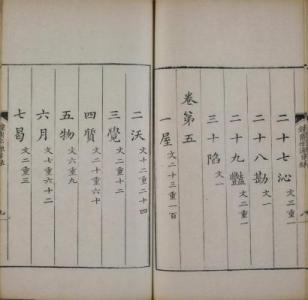 二十七沁 文三重一
二十八勘 文一
二十九豔 文二重一
三十陷 文一
卷第五
一屋 文二十三重一百
二沃 文十二重二十四
三覺 文二重十二
四質 文二十重六十
五物 文六重九
六月 文七重六十二
七曷 文二重三